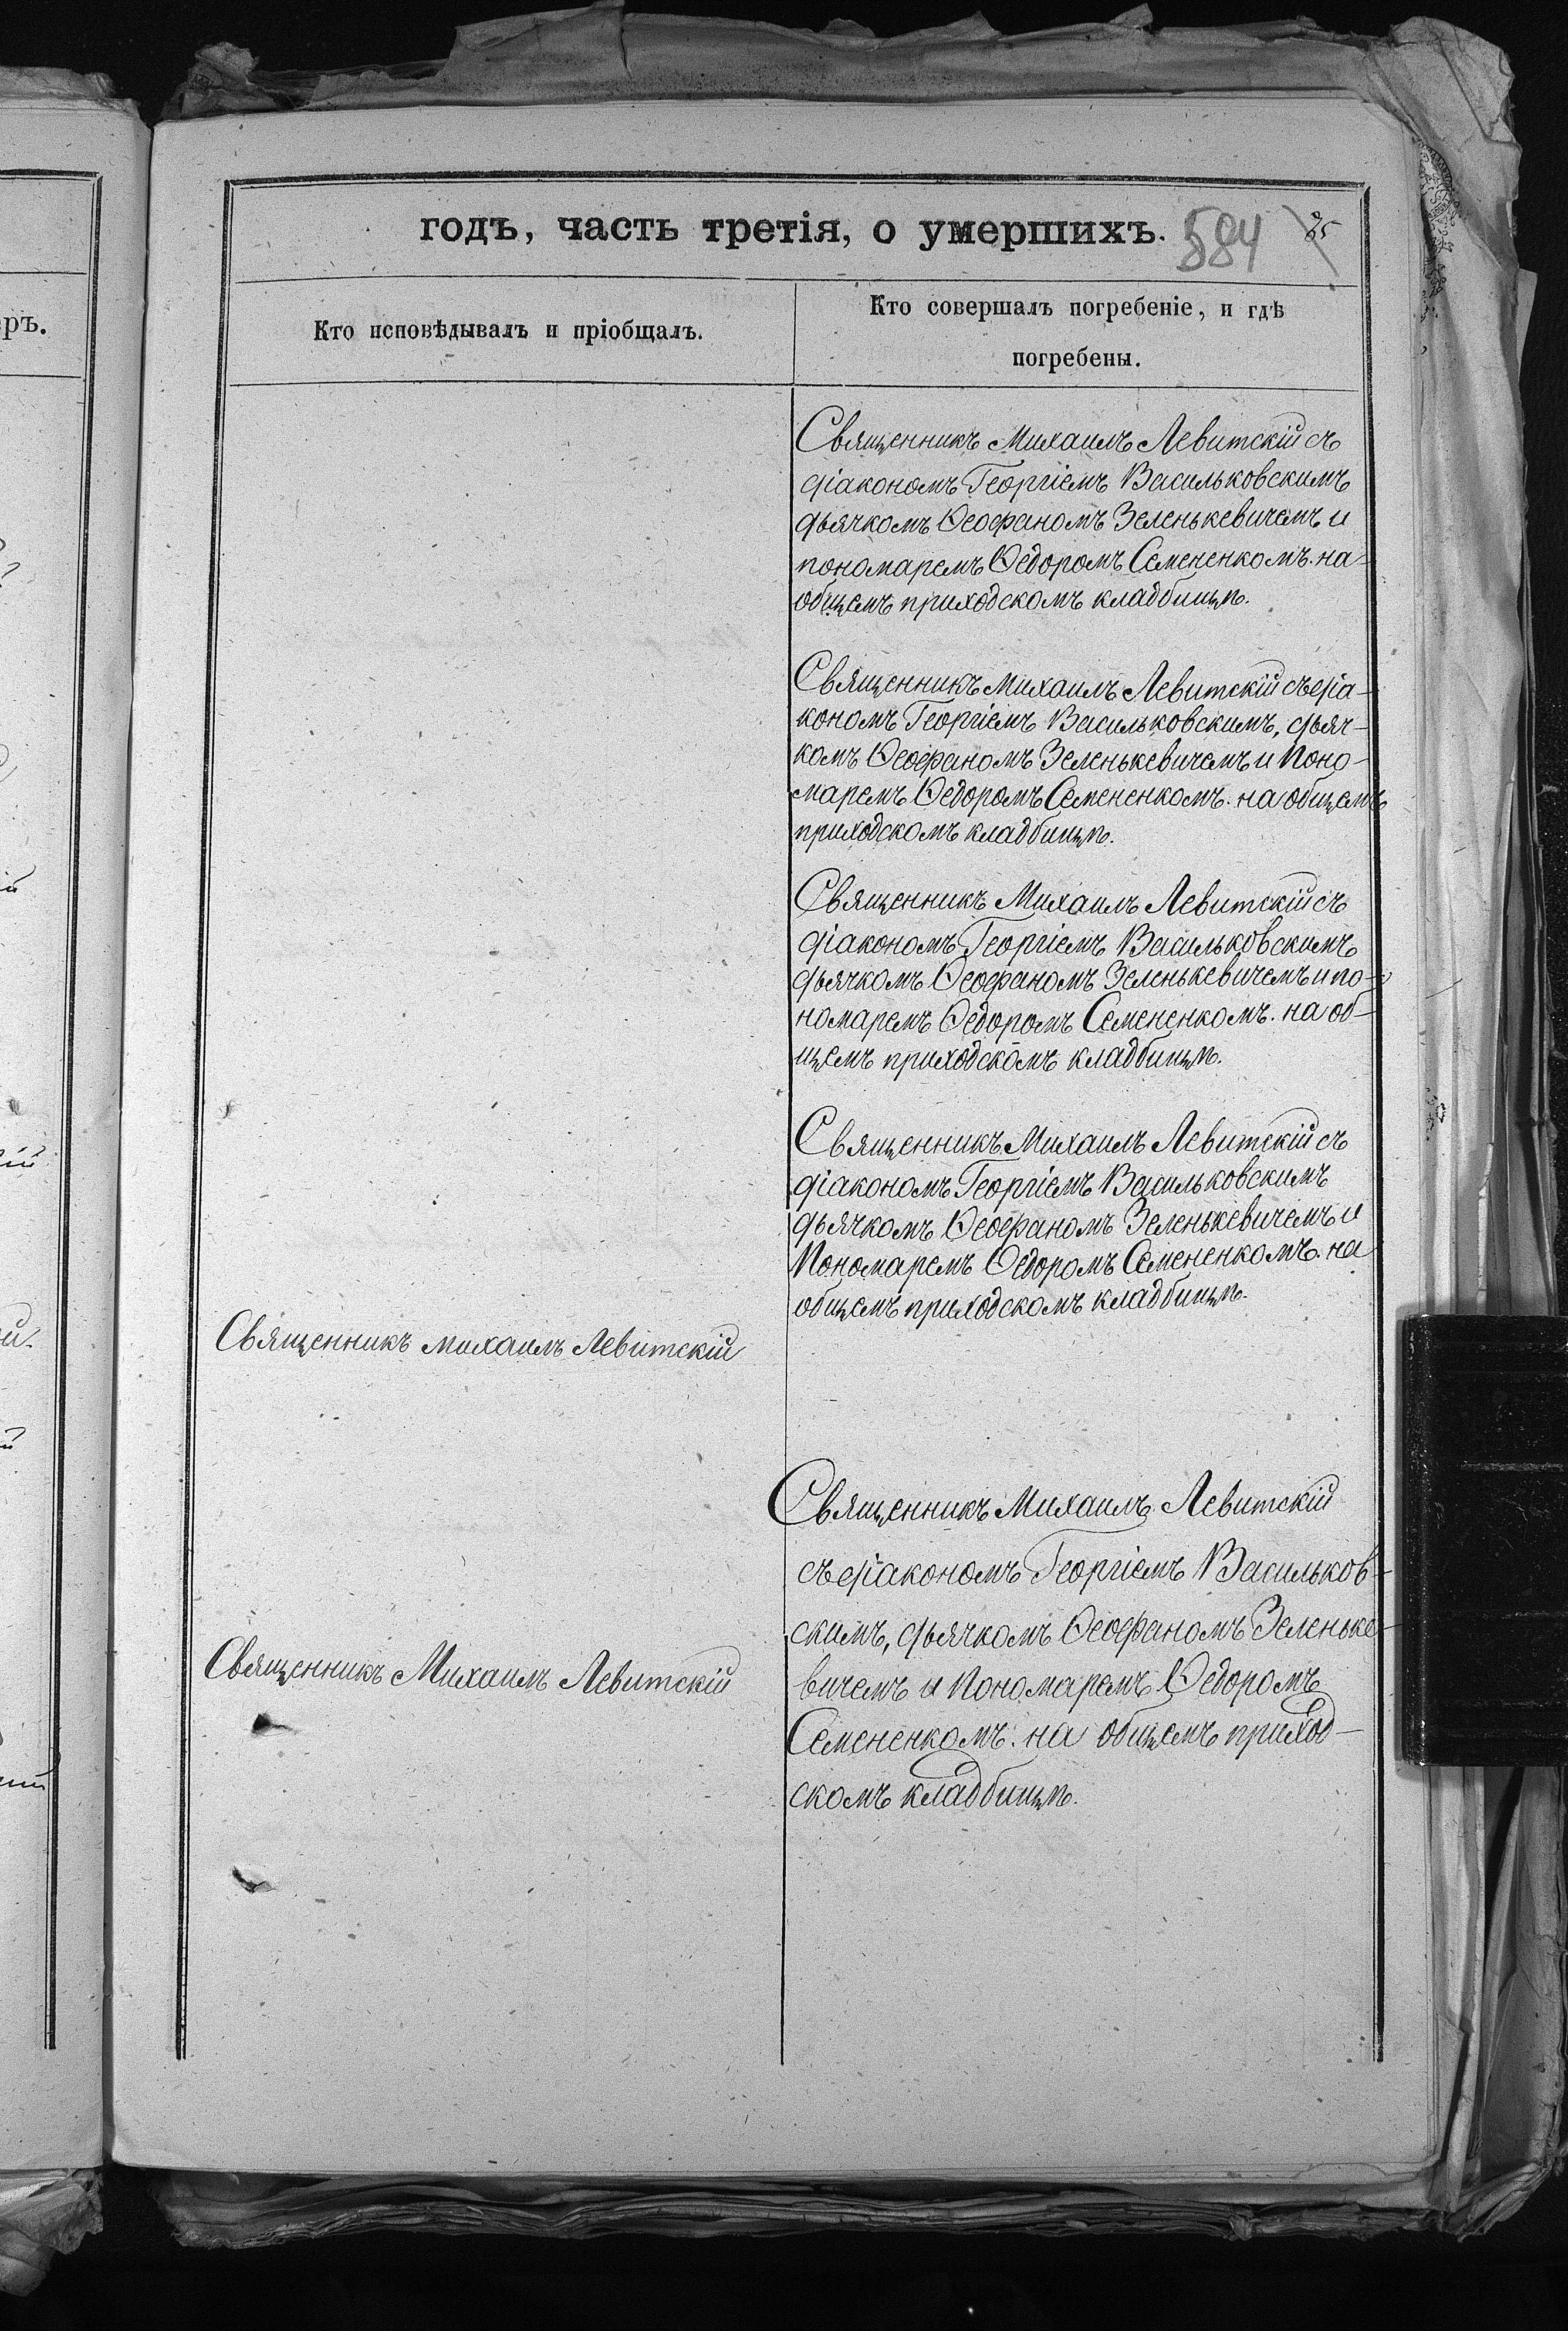 годъ, часть третія, о умершихъ.
584
Кто исповѣдывалъ и пріобщалъ.
Кто совершалъ погребеніе, и гдѣ
погребены.
Священникъ Михаилъ Левитскій съ
діакономъ Георгіемъ Васильковскимъ
дьячкомъ Ѳеофаномъ Зеленькевичемъ и
пономаремъ Ѳедоромъ Семененкомъ. на-
общемъ приходскомъ кладбищѣ.
Священникъ Михаилъ Левитскій съ діа-
кономъ Георгіемъ Васильковскимъ, дьяч-
комъ Ѳеофаномъ Зеленькевичемъ и Поно-
маремъ Ѳедоромъ Семененкомъ. на общемъ
приходскомъ кладбищѣ.
Священникъ Михаилъ Левитскій съ
діакономъ Георгіемъ Васильковскимъ
дьячкомъ Ѳеофаномъ Зеленькевичемъ и по-
номаремъ Ѳедоромъ Семененкомъ. на об-
щемъ приходскомъ кладбищѣ.
Священникъ Михаилъ Левитскій съ
діакономъ Георгіемъ Васильковскимъ
дьячкомъ Ѳеофаномъ Зеленькевичемъ и
Пономаремъ Ѳедоромъ Семененкомъ. на
общемъ приходскомъ кладбищѣ.
Священникъ Михаилъ Левитскій
Священникъ Михаилъ Левитскій
съ діакономъ Георгіемъ Васильков-
скимъ, дьячкомъ Ѳеофаномъ Зеленьке-
вичемъ и Пономаремъ Ѳедоромъ
Семененкомъ. на общемъ приход-
скомъ кладбищѣ.
Священникъ Михаилъ Левитскій